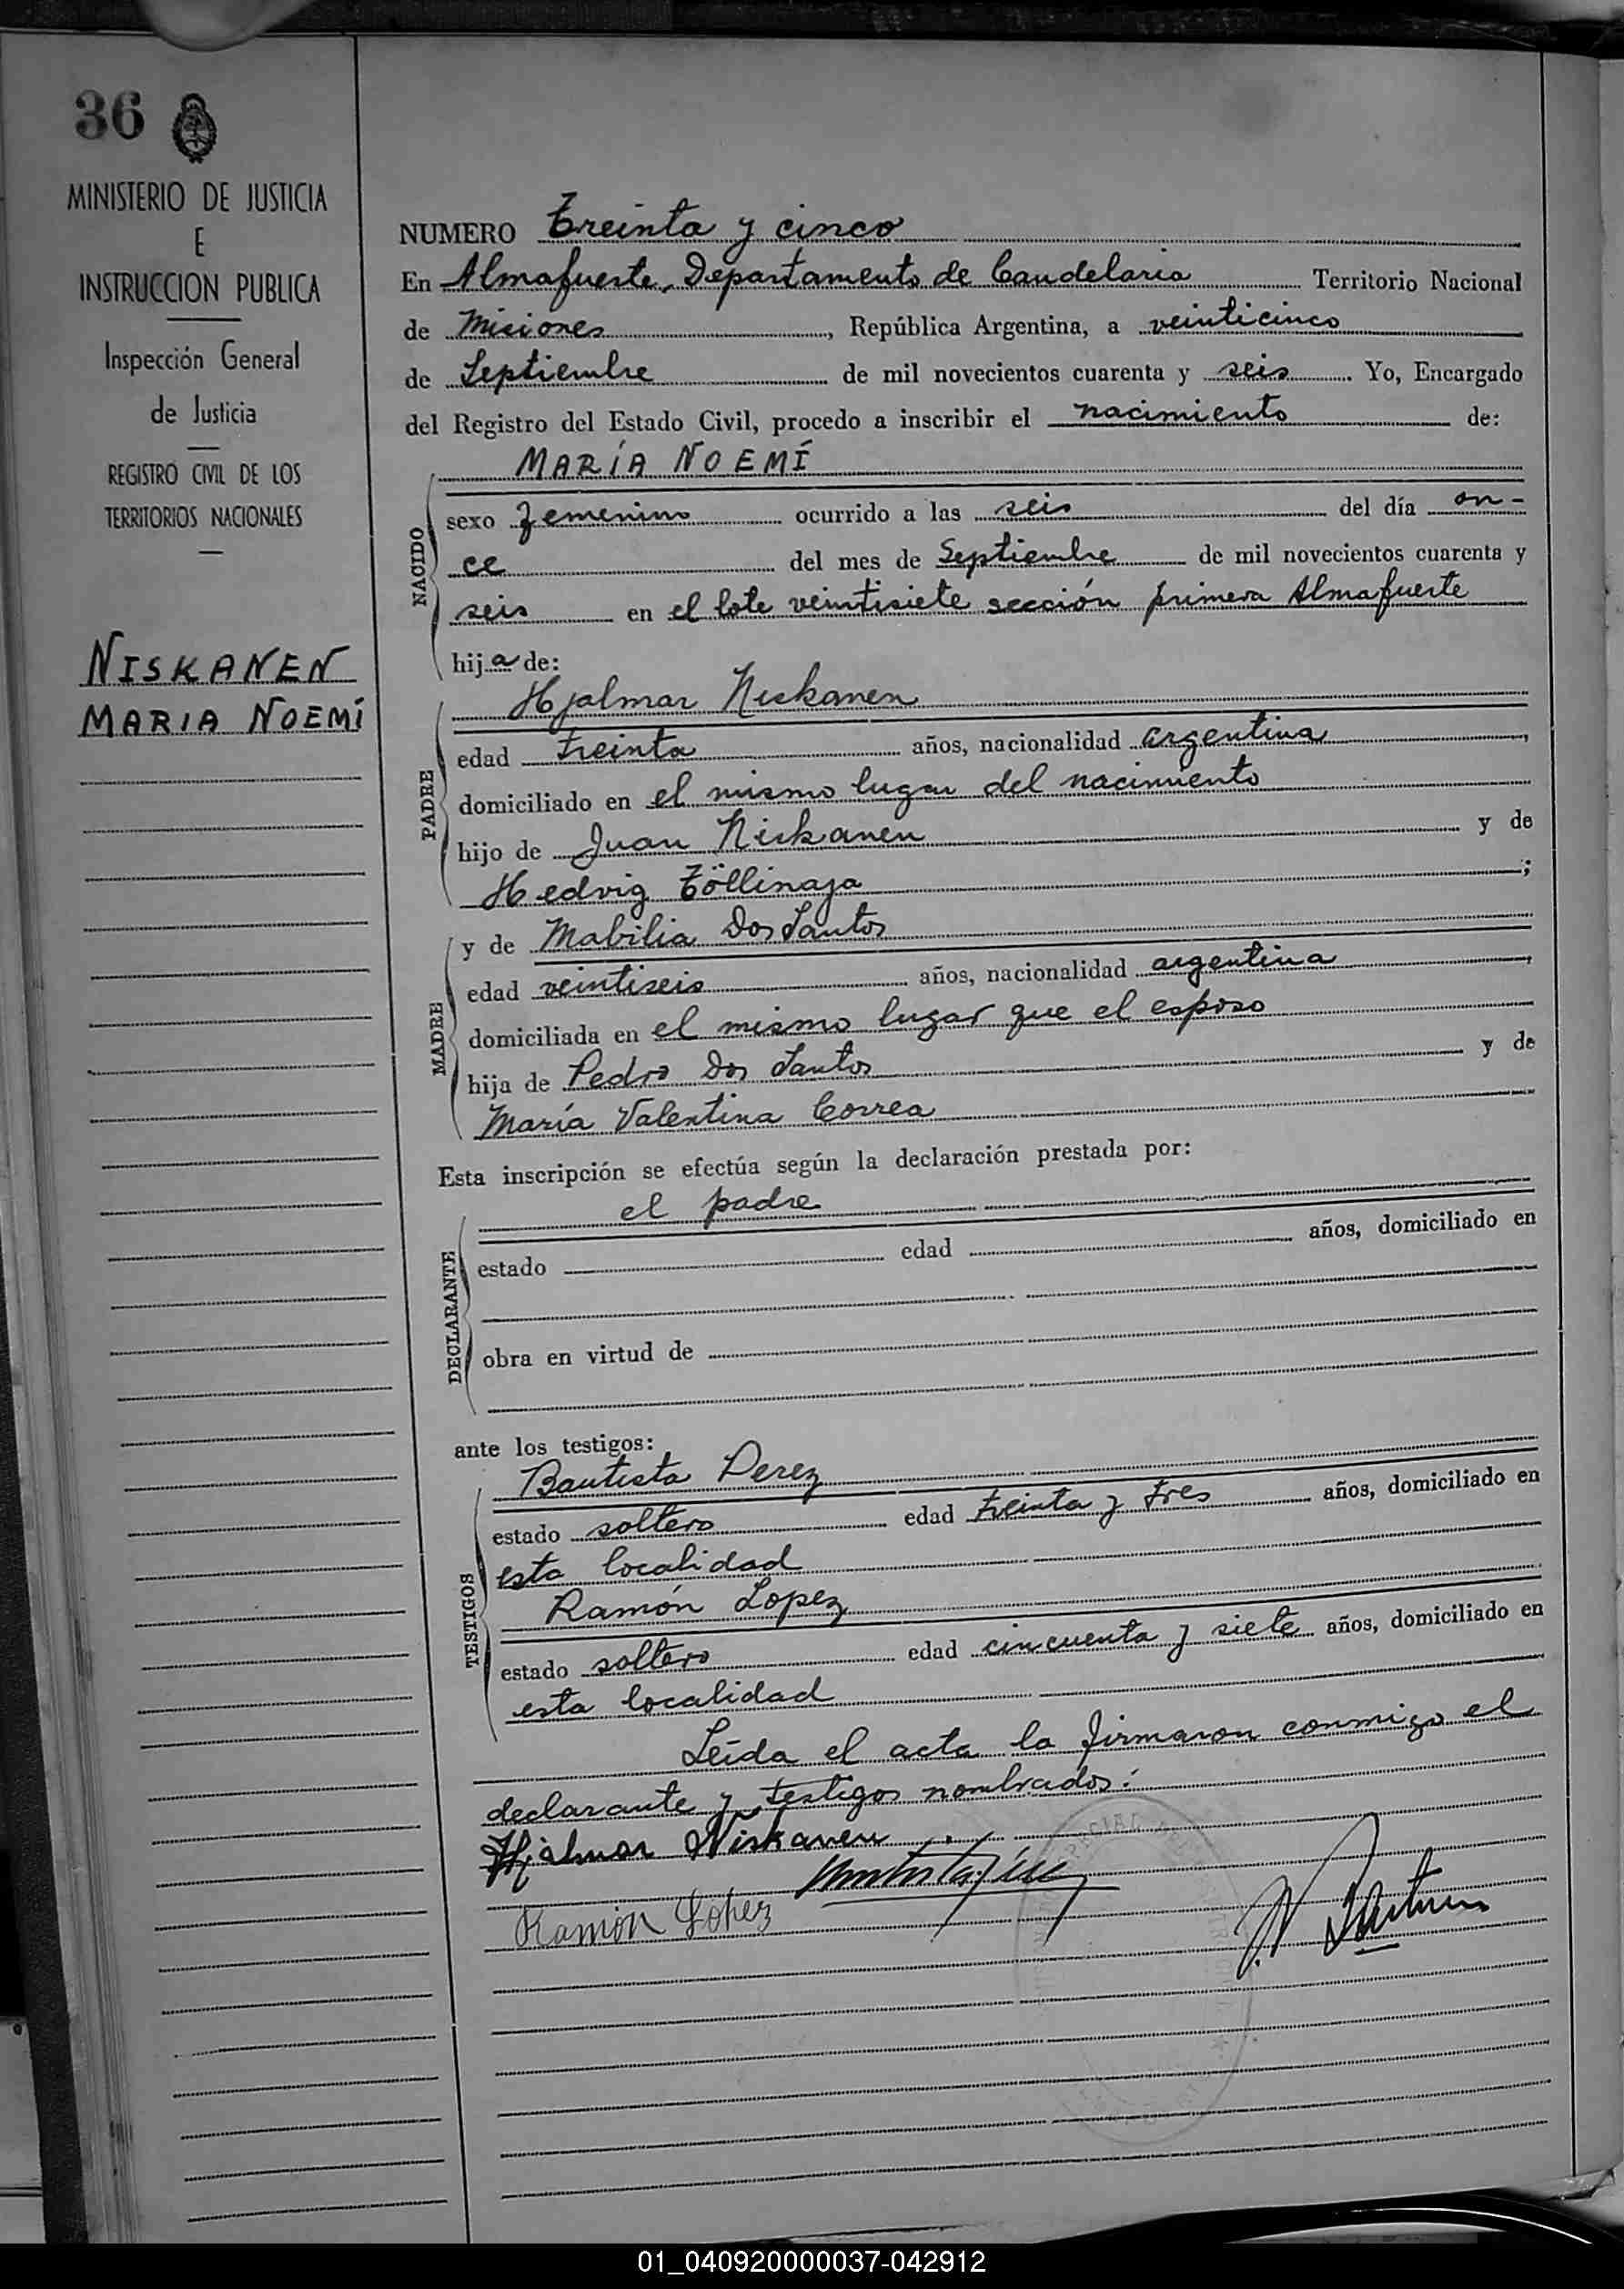 36
MINISTERIO DE JUSTICIA
E
INSTRUCCION PUBLICA
Inspección General
de Justicia
REGISTRO CIVIL DE LOS
TERRITORIOS NACIONALES
NISKANEN
MARIA NOEMÍ
NUMERO Treinta y cinco
En Almafuerte, Departamento de Candelaria Territorio Nacional
de Misiones, República Argentina, a veinticinco
de Septiembre de mil novecientos cuarenta y seis. Yo, Encargado
del Registro del Estado Civil, procedo a inscribir el nacimiento de:
MARÍA NOEMÍ
NACIDO
sexo femenino ocurrido a las seis del día on-
ce del mes de Septiembre de mil novecientos cuarenta y
seis en el lote veintisiete sección primera Almafuerte
hija de:
PADRE
Hjalmar Niskanen
edad treinta años, nacionalidad argentina,
domiciliado en el mismo lugar del nacimiento
hijo de Juan Niskanen y de
Hedvig Töllinaja;
MADRE
y de Mabilia Dos Santos
edad veintiseis años, nacionalidad argentina,
domiciliada en el mismo lugar que el esposo
hija de Pedro Dos Santos y de
María Valentina Correa
Esta inscripción se efectúa según la declaración prestada por:
DECLARANTE
el padre
estado edad años, domiciliado en
obra en virtud de
ante los testigos:
TESTIGOS
Bautista Perez
estado soltero edad treinta y tres años, domiciliado en
esta localidad
Ramón Lopez
estado soltero edad cincuenta y siete años, domiciliado en
esta localidad
Leída el acta la firmaron conmigo el
declarante y testigos nombrados:
Hjalmar Niskanen
Ramón Lopez
01_040920000037-042912